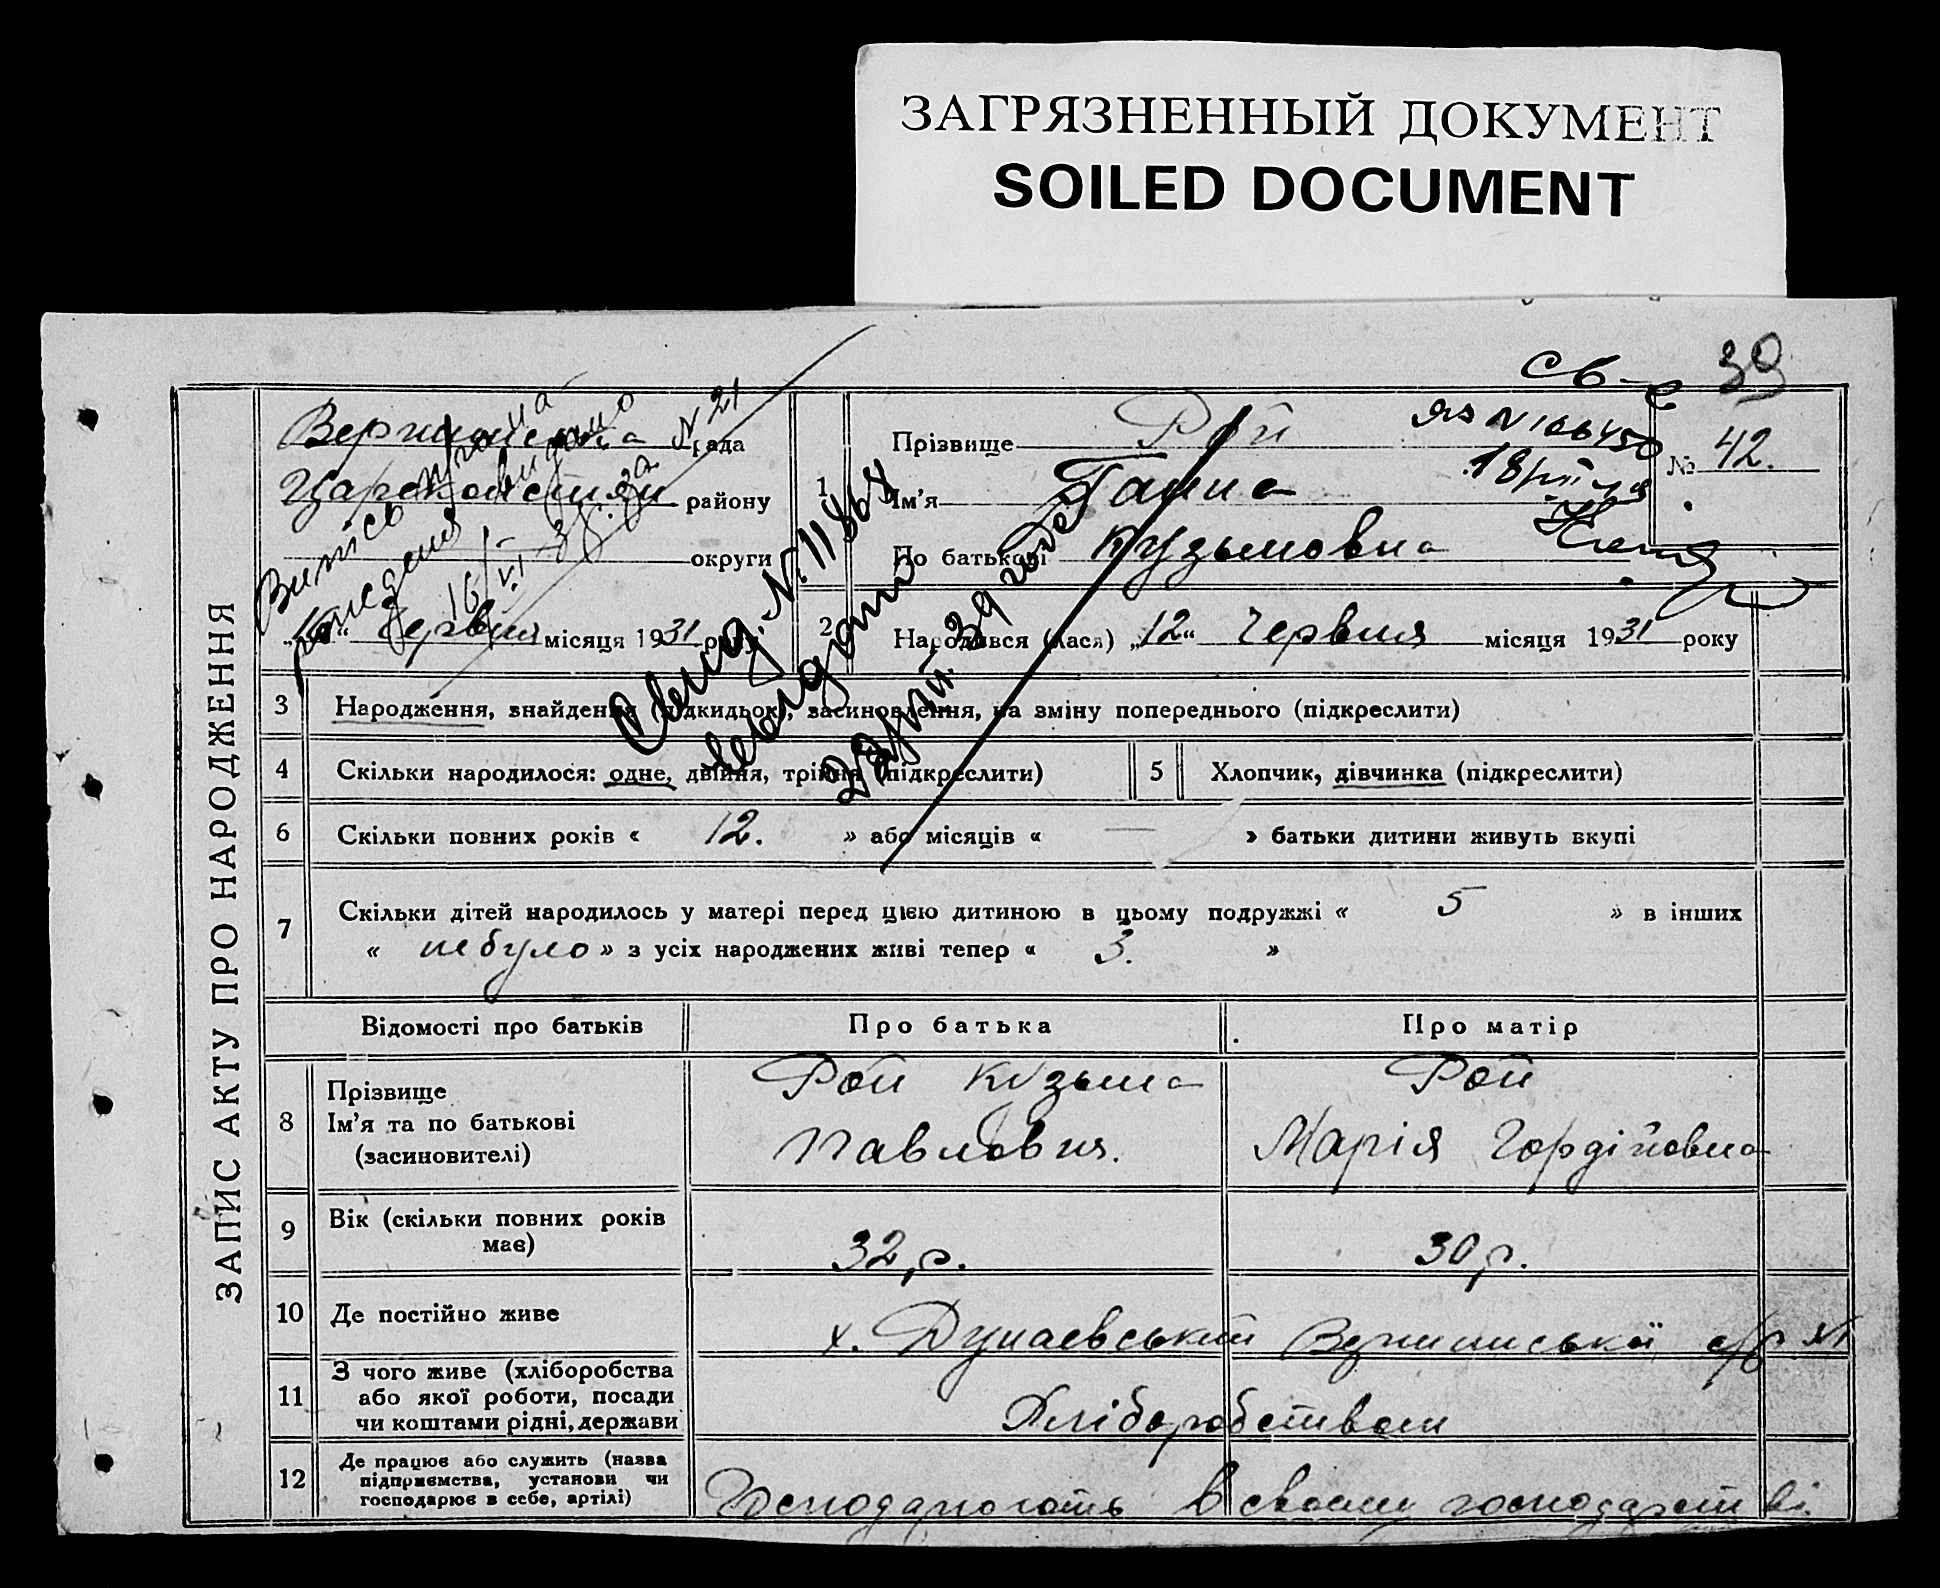 ЗАГРЯЗНЕННЫЙ ДОКУМЕНТ
SOILED DOCUMENT
39
ЗАПИС АКТУ ПРО НАРОДЖЕННЯ
рада
району
округи
Червня місяця 1931 року
№ 21
Свид. № 11864
39 года
1 Прізвище Рой
Ім'я Ганна
По батькові Кузьмовна
ЯЗ № 166450
№ 42.
2 Народився (лася) „12“ Червня місяця 1931 року
3 Народження, знайдення (підкидьок), засиновлення, на зміну попереднього (підкреслити)
4 Скільки народилося: одне, двійня, трійня (підкреслити)
5 Хлопчик, дівчинка (підкреслити)
6 Скільки повних років « 12. » або місяців « — » батьки дитини живуть вкупі
7 Скільки дітей народилось у матері перед цією дитиною в цьому подружжі « 5 » в інших
« небуло » з усіх народжених живі тепер « 3. »
Відомості про батьків Про батька Про матір
8 Прізвище
Ім'я та по батькові
(засиновителі)
Рой Кузьма
Павлович.
Рой
Марія Гордіївна
9 Вік (скільки повних років
має)
32, р. 30, р.
10 Де постійно живе
х. Дунаевський с/р
11 З чого живе (хліборобства
або якої роботи, посади
чи коштами рідні, держави
Хліборобством
12 Де працює або служить (назва
підприємства, установи чи
господарює в себе, артілі)
Господарюють в своему господарстві.